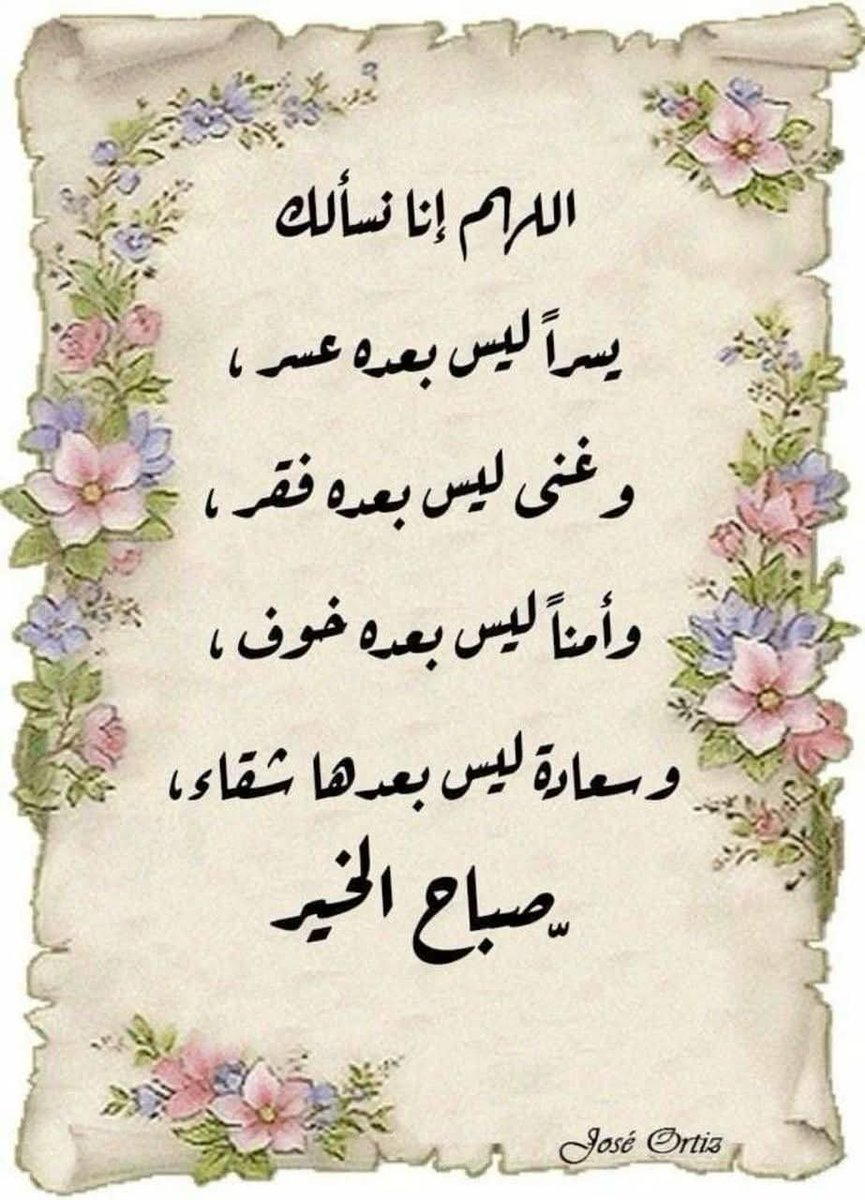 اللهم إنا نسألك
يسراً ليس بعده عسر ،
و غنى ليس بعده فقر ،
وأمناً ليس بعده خوف ،
و سعادة ليس بعدها شقاء،
صباح الخير
José Ortiz